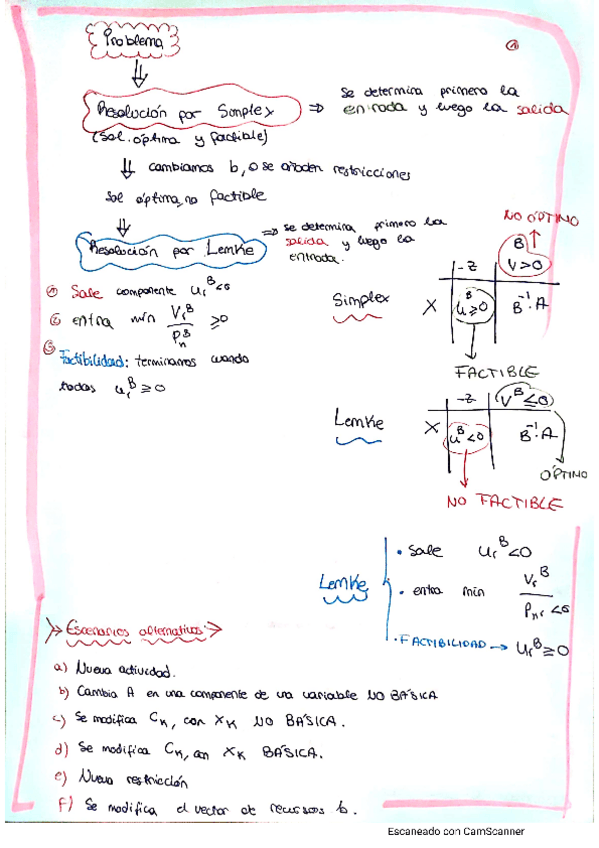 Problema
①
Resolución por Simplex ⇒ Se determina primero la
entrada y luego la salida
(Sol. óptima y factible)
⇓ cambiamos b, o se añaden restricciones
Sol óptima, no factible
Resolución por Lemke ⇒ se determina primero la
salida y luego la
entrada.
① Sale componente uᵣᴮ<0
② entra mín Vᵣᴮ/Pₙᴮ ≥0
③ Factibilidad: terminamos cuando
todas uᵣᴮ ≥ 0
NO ÓPTINO
-Z Vᴮ>0
Simplex X uᴮ≥0 B⁻¹·A
FACTIBLE
-Z Vᴮ≤0
Lemke X uᴮ<0 B⁻¹·A
ÓPTINO
NO FACTIBLE
Lemke
· Sale uᵣᴮ<0
· entra min Vᵣᴮ/Pₙᵣ<0
· FACTIBILIDAD → uᵣᴮ≥0
Escenarios alternativos
a) Nueva actividad.
b) Cambia A en una componente de una variable NO BÁSICA
c) Se modifica Cₖ, con Xₖ NO BÁSICA.
d) Se modifica Cₖ, con Xₖ BÁSICA.
e) Nueva restricción
f) Se modifica el vector de recursos b.
Escaneado con CamScanner